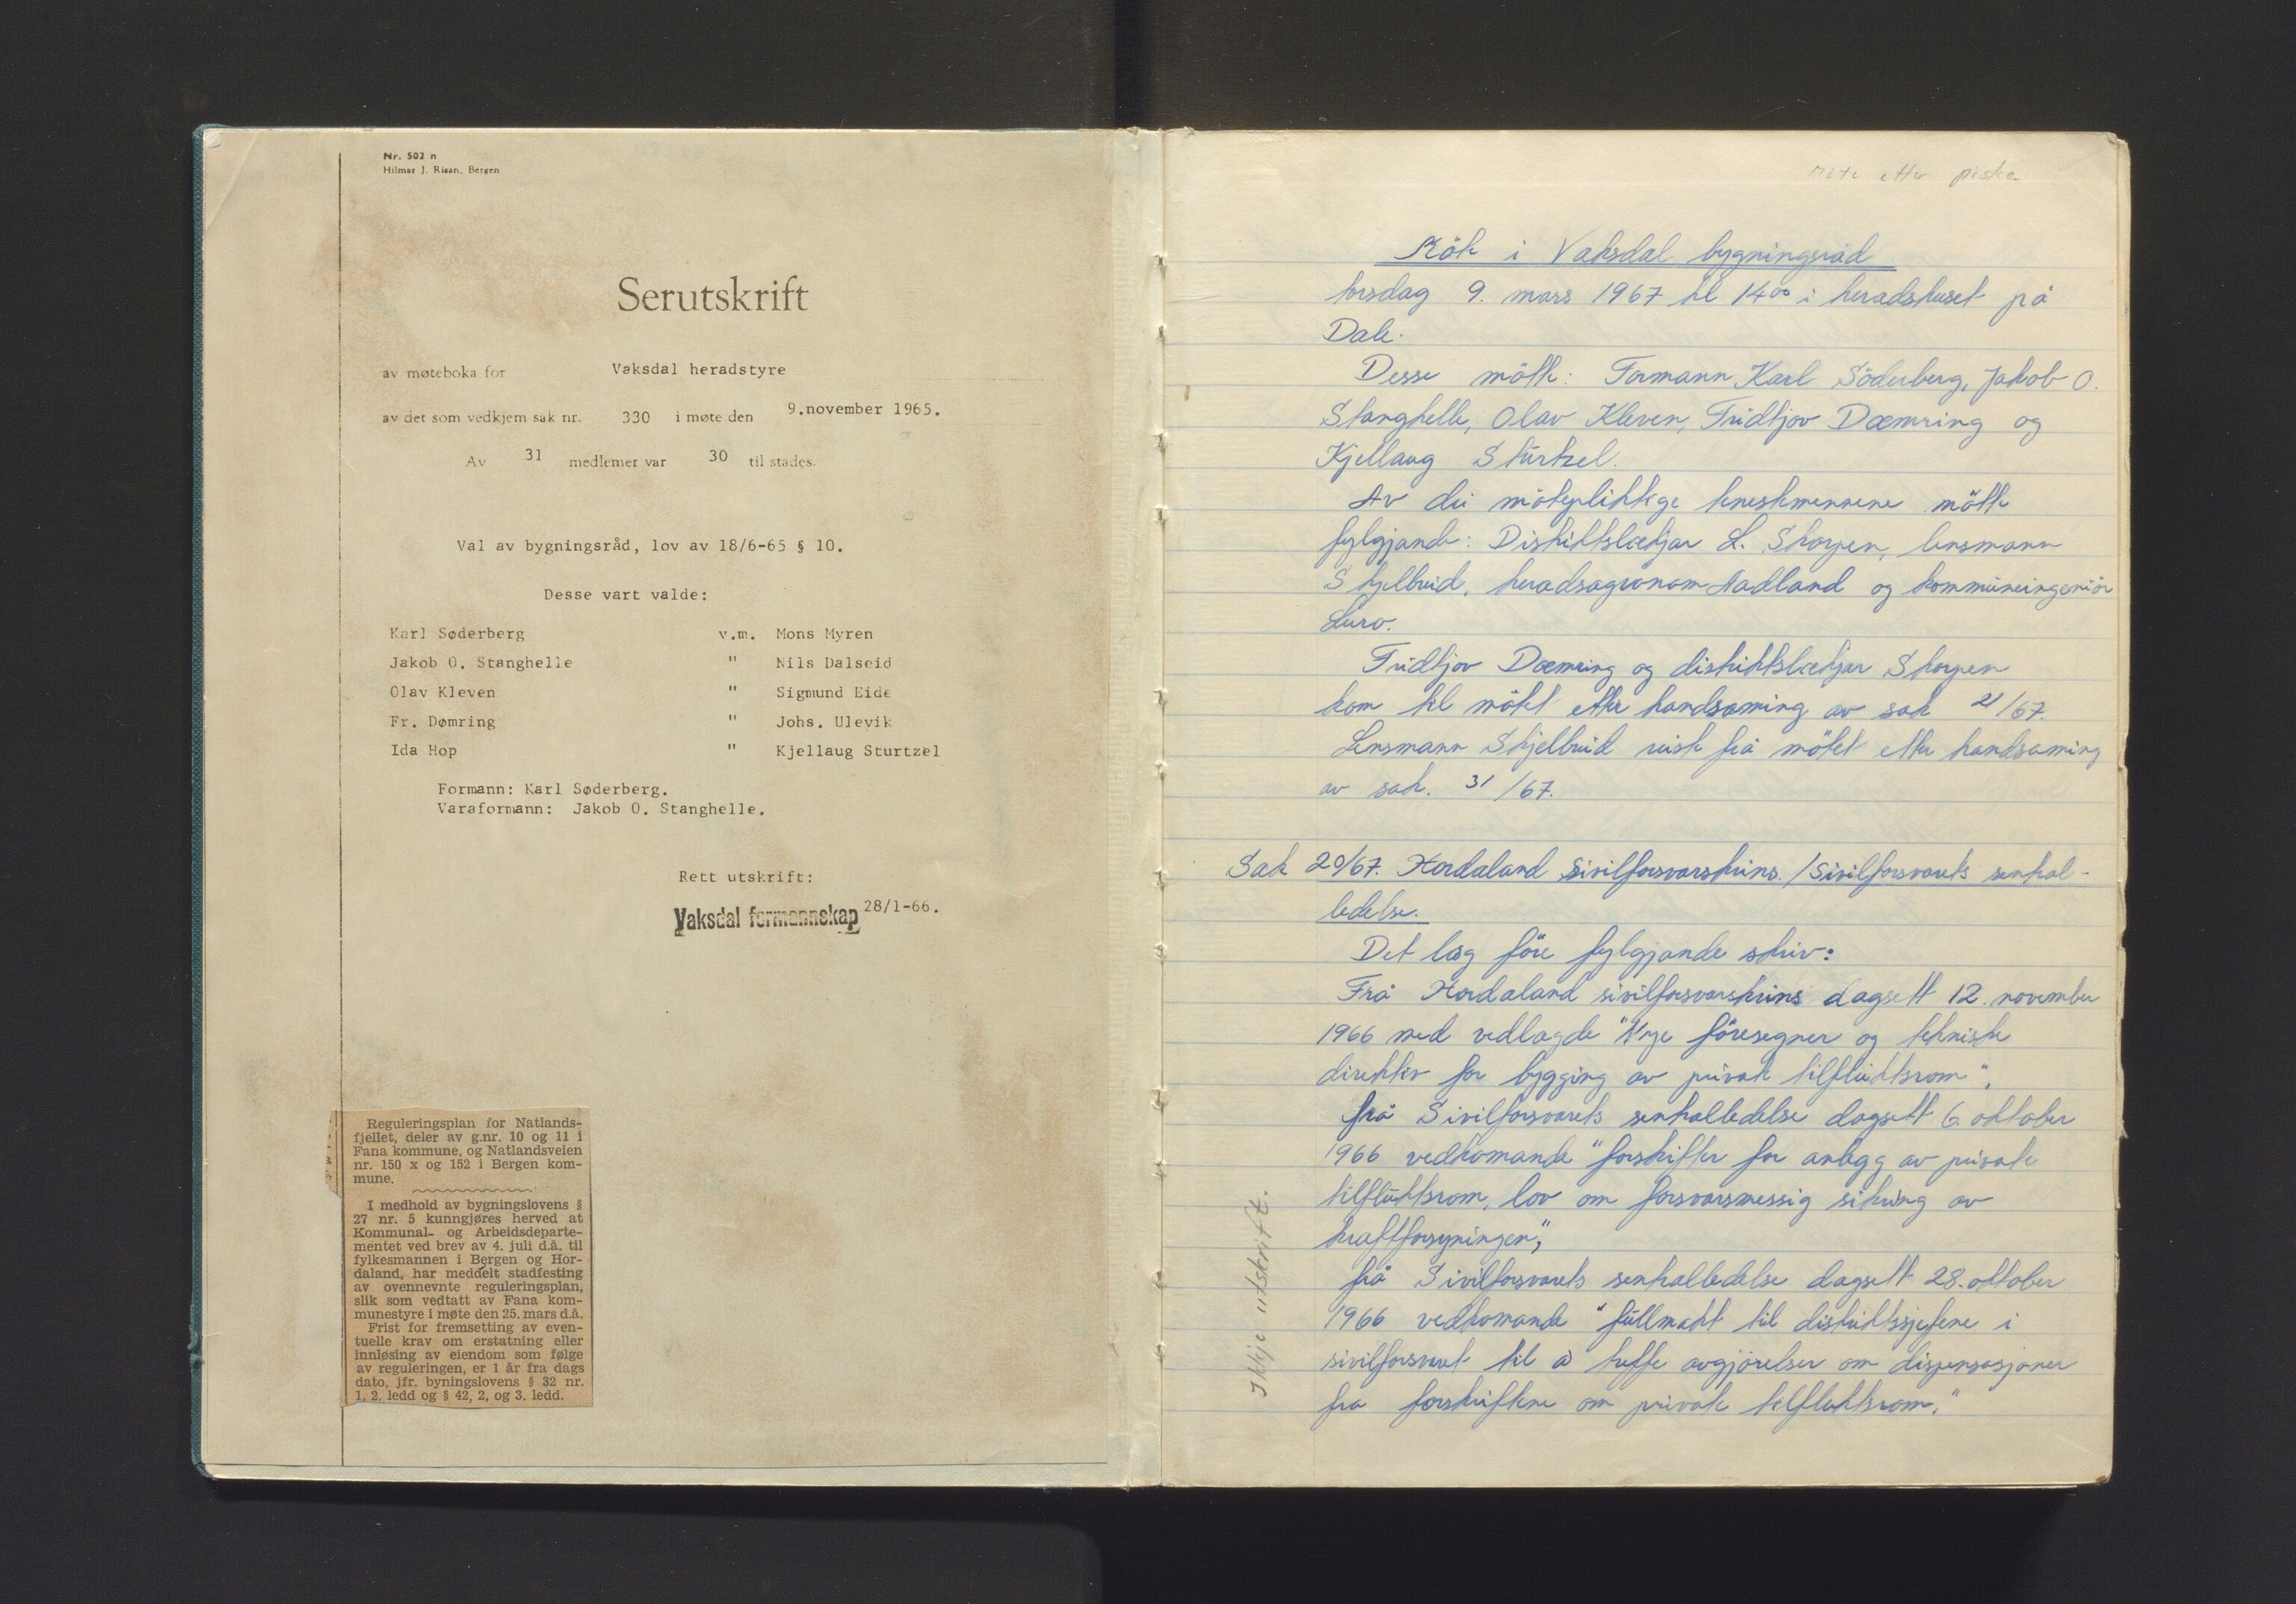 Nr. 502 n
Hilmar J. Risan, Bergen
Serutskrift
av møteboka for Vaksdal heradstyre
av det som vedkjem sak nr. 330 i møte den 9.november 1965.
Av 31 medlemer var 30 til stades.
Val av bygningsråd, lov av 18/6-65 § 10.
Desse vart valde:
Karl Søderberg v.m. Mons Myren
Jakob O. Stanghelle " Nils Dalseid
Olav Kleven " Sigmund Eide
Fr. Dømring " Johs. Ulevik
Ida Hop " Kjellaug Sturtzel
Formann: Karl Søderberg.
Varaformann: Jakob O. Stanghelle.
Rett utskrift:
Vaksdal formannskap 28/1-66.
Reguleringsplan for Natlands-
fjellet, deler av g.nr. 10 og 11 i
Fana kommune, og Natlandsveien
nr. 150 x og 152 i Bergen kom-
mune.
I medhold av bygningslovens §
27 nr. 5 kunngjøres herved at
Kommunal- og Arbeidsdeparte-
mentet ved brev av 4. juli d.å. til
fylkesmannen i Bergen og Hor-
daland, har meddelt stadfesting
av ovennevnte reguleringsplan,
slik som vedtatt av Fana kom-
munestyre i møte den 25. mars d.å.
Frist for fremsetting av even-
tuelle krav om erstatning eller
innløsing av eiendom som følge
av reguleringen, er 1 år fra dags
dato, jfr. byningslovens § 32 nr.
1, 2. ledd og § 42, 2, og 3. ledd.
møte etter
Möte i Vaksdal bygningsråd
torsdag 9. mars 1967 kl 14⁰⁰ i heradshuset på
Dale.
Desse mötte: Formann Karl Söderberg, Jakob O.
Stanghelle, Olav Kleven, Fridtjov Dæmring og
Kjellaug Stürtzel.
Av dei mötepliktige tenestemennene mötte
fylgjande: Distriktslækjar L. Skorpen, lensmann
Skjelbreid, heradsagronom Aadland og kommuneingeniör
Luro.
Fridtjov Dæmring og distriktslækjar Skorpen
kom til mötet etter handsaming av sak 21/67.
Lensmann Skjelbreid reiste frå mötet etter handsaming
av sak. 31/67.
Sak 20/67. Hordaland Sivilforsvarskrins. / Sivilforsvarets sentral-
ledelse.
Det låg före fylgjande skriv:
Frå Hordaland sivilforsvarskrins dagsett 12. november
1966 med vedlagde "Nye föresegner og tekniske
direktiv for bygging av private tilfluktsrom",
frå Sivilforsvarets sentralledelse dagsett 6. oktober
1966 vedkomande "forskifter for anlegg av private
tilfluktsrom, lov om forsvarsmessig sikring av
kraftforsyningen",
frå Sivilforsvarets sentralledelse dagsett 28. oktober
1966 vedkomande "fullmakt til distriktssjefene i
sivilforsvaret til å treffe avgjörelser om dispensasjoner
fra forskriftene om private tilfluktsrom."
Ikkje utskrift.